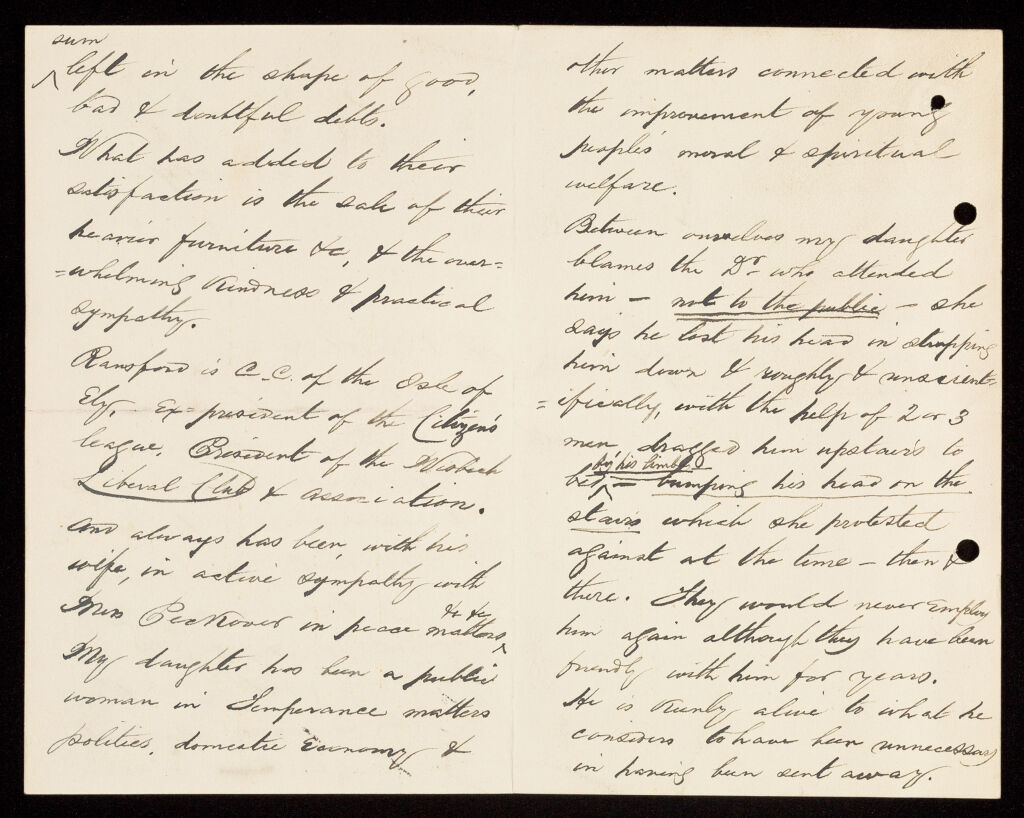 sum
left in the shape of good,
bad & doubtful debts.
What has added to their
satisfaction is the sale of their
heavier furniture &c, & the over=
=whelming kindness & practical
sympathy.
Ransford is C.C. of the Isle of
Ely. Ex=president of the Citizen's
league, President of the Wisbech
Liberal Club & association.
and always has been, with his
wife, in active sympathy with
&c &c
Miss Peckover in peace matters
My daughter has been a public
woman in Temperance matters
politics, domestic economy &
other matters connected with
the improvement of young
peoples' moral & spiritual
welfare.
Between ourselves my daughter
blames the Dr. who attended
him — not to the public — she
says he lost his head in strapping
him down & roughly & unscient=
=ifically, with the help of 2 or 3
men, dragged him upstairs to
by his limbs
bed — bumping his head on the
stairs which she protested
against at the time — then &
there. They would never employ
him again although they have been
friendly with him for years.
He is keenly alive to what he
considers to have been unnecessary
in having been sent away.